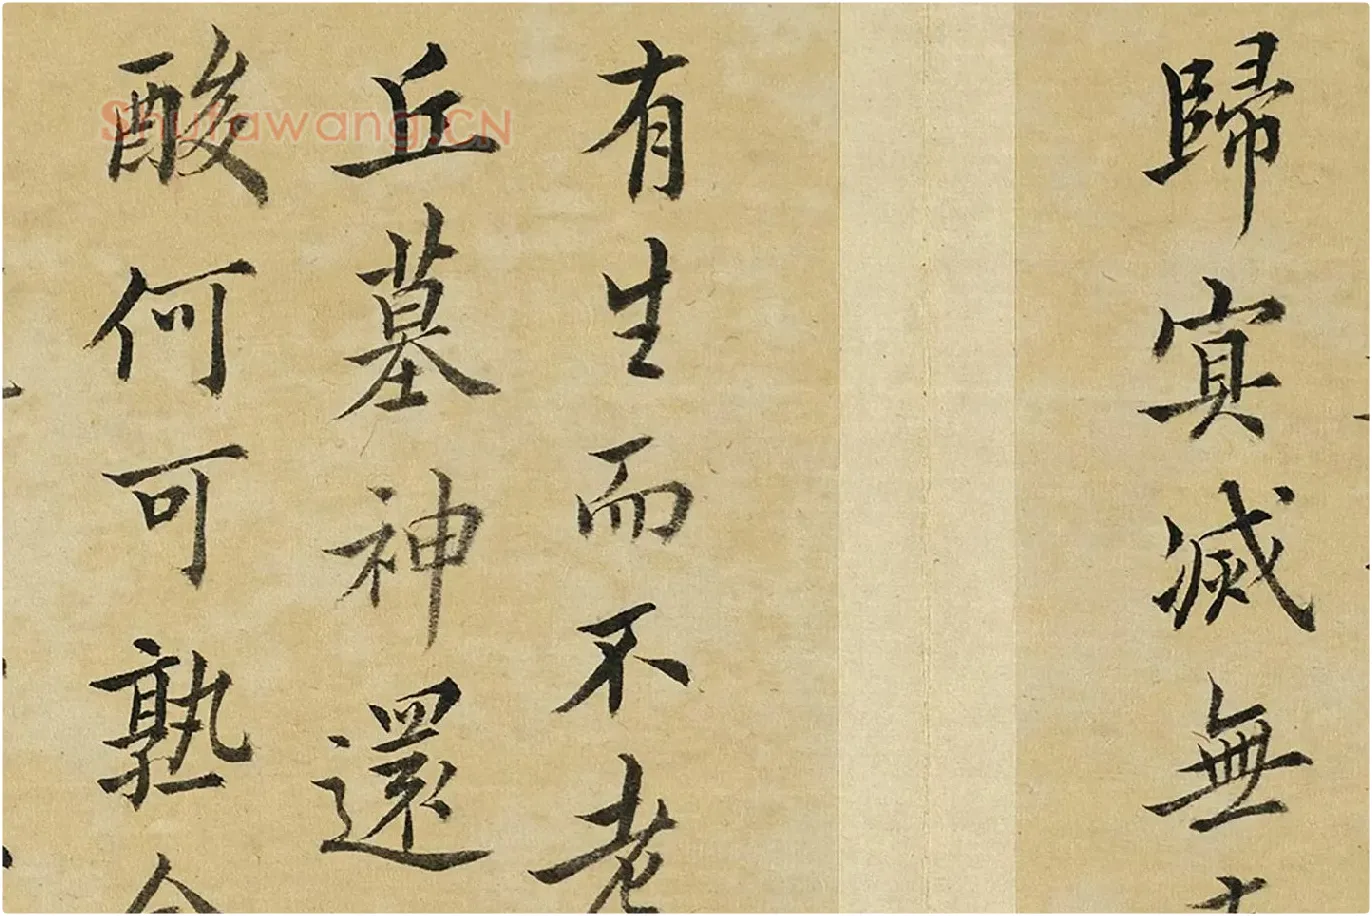 歸寘滅無
有生而不老
丘墓神還
酸何可熟
Shufawang.CN